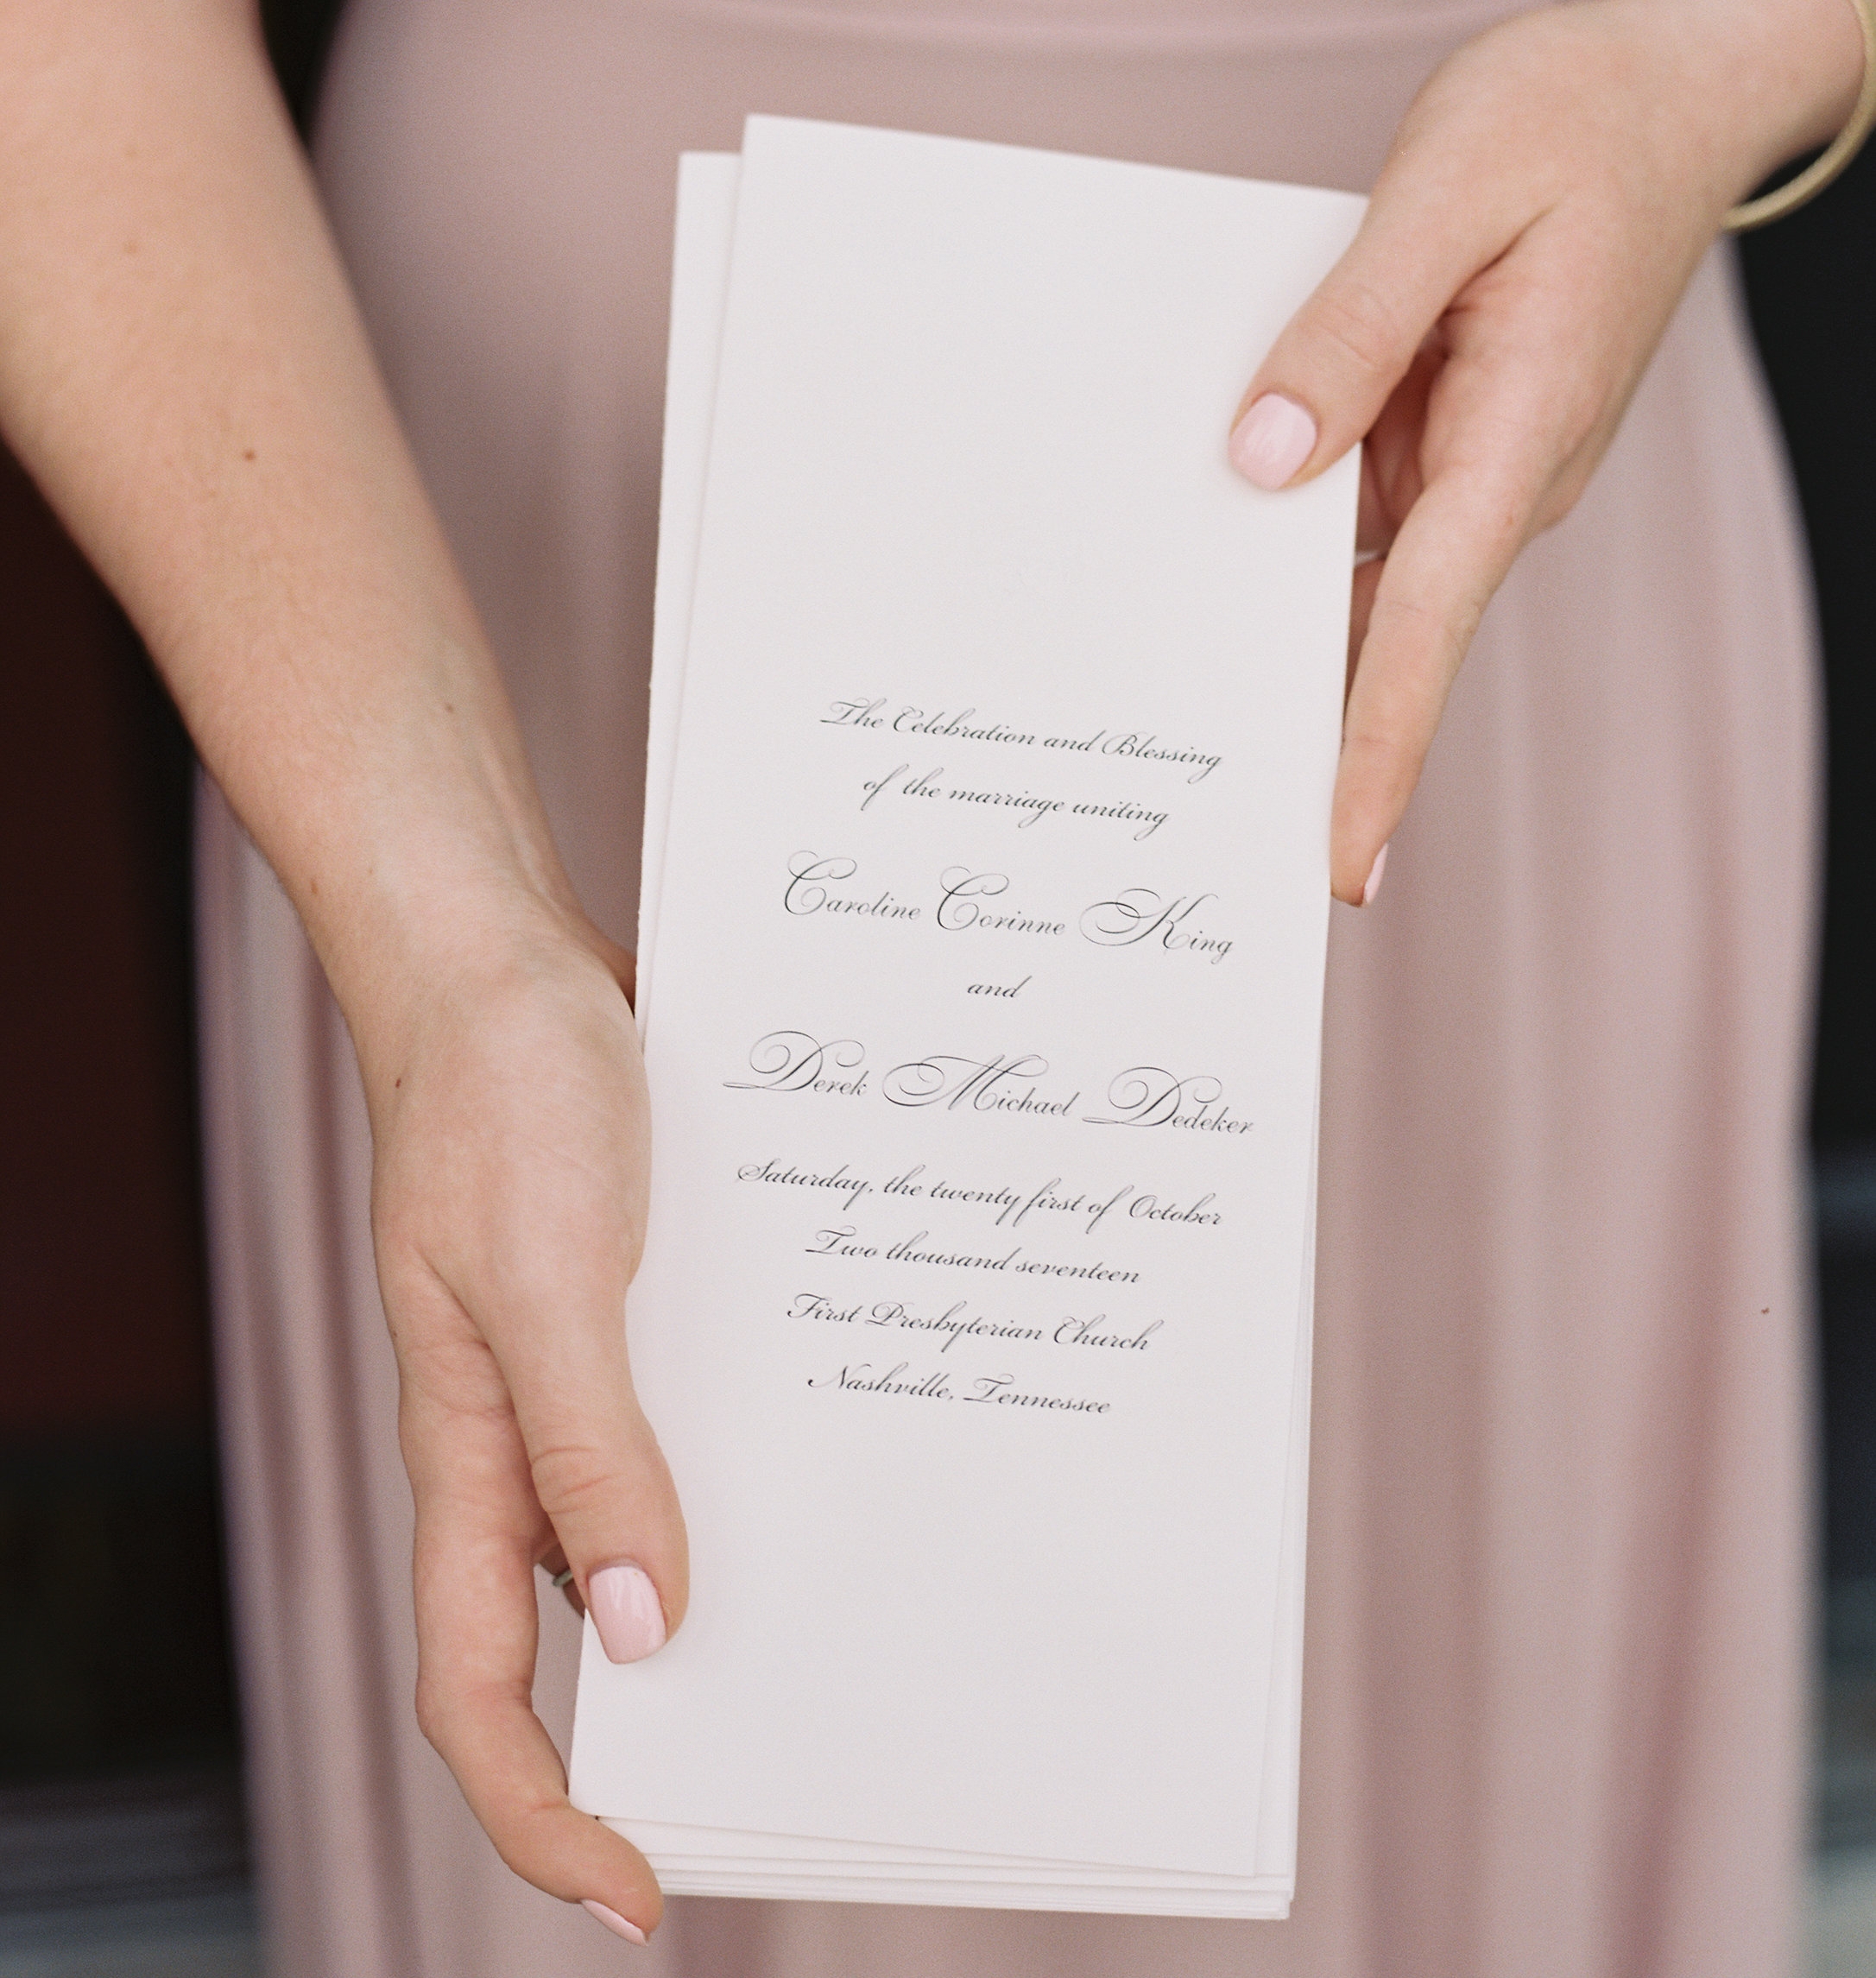 The Celebration and Blessing
of the marriage uniting
Caroline Corinne King
and
Derek Michael Dedeker
Saturday, the twenty first of October
Two thousand seventeen
First Presbyterian Church
Nashville, Tennessee